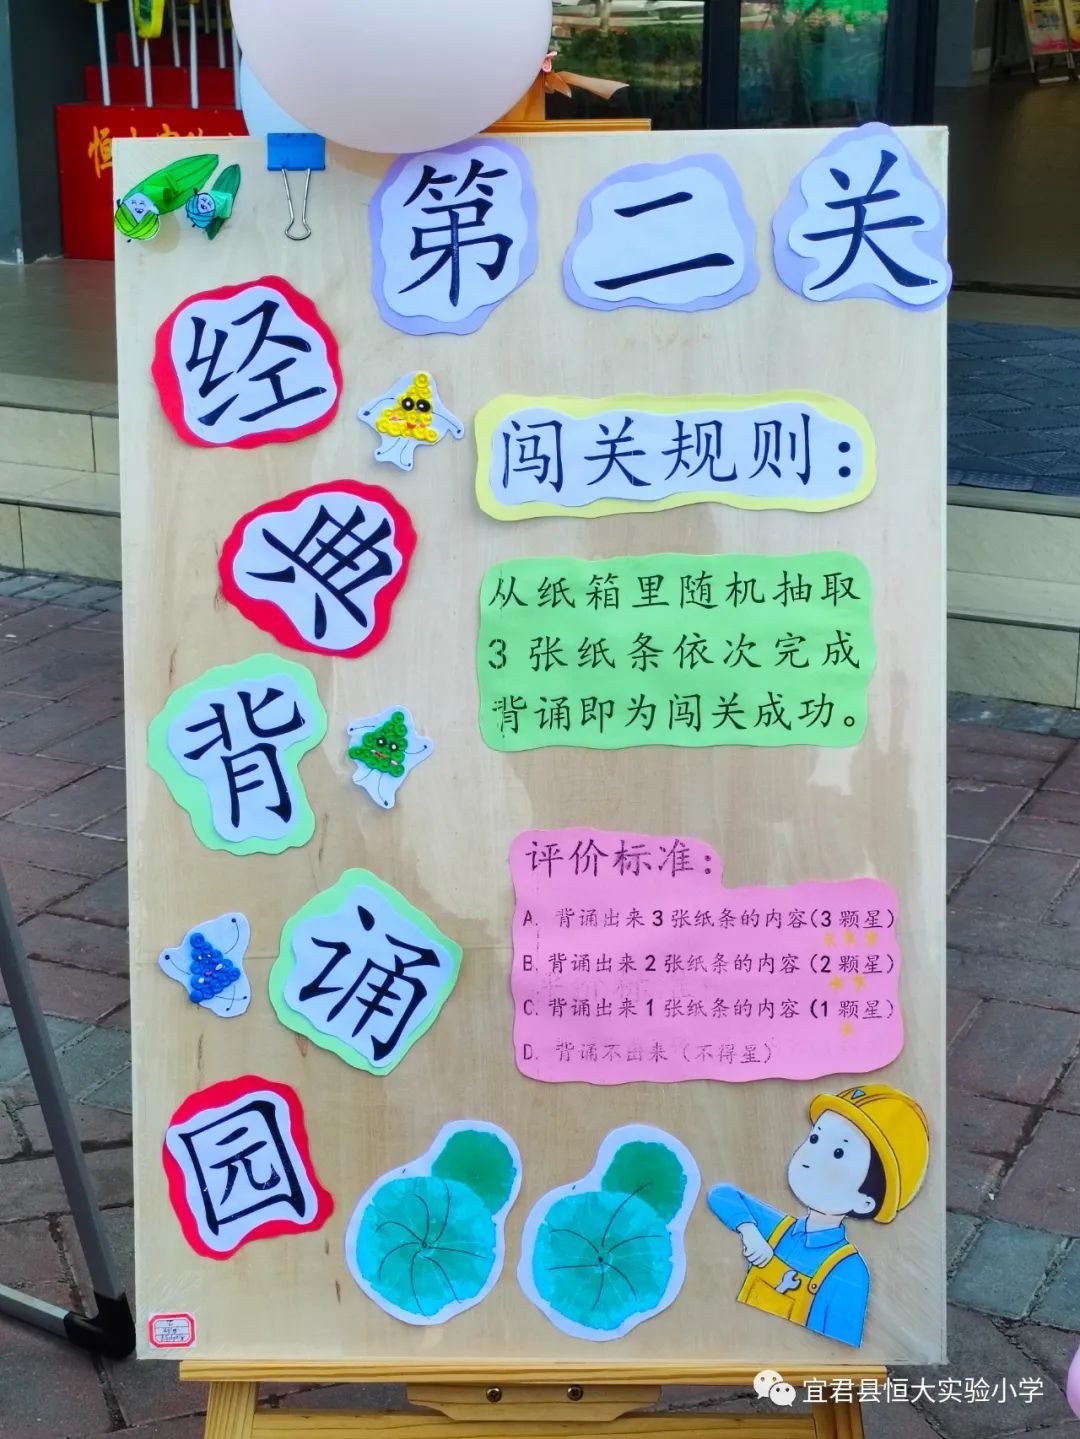 第二关
经典背诵园
闯关规则：
从纸箱里随机抽取
3张纸条依次完成
背诵即为闯关成功。
评价标准：
A. 背诵出来3张纸条的内容(3颗星)
B. 背诵出来2张纸条的内容(2颗星)
C. 背诵出来1张纸条的内容(1颗星)
D. 背诵不出来（不得星）
宜君县恒大实验小学